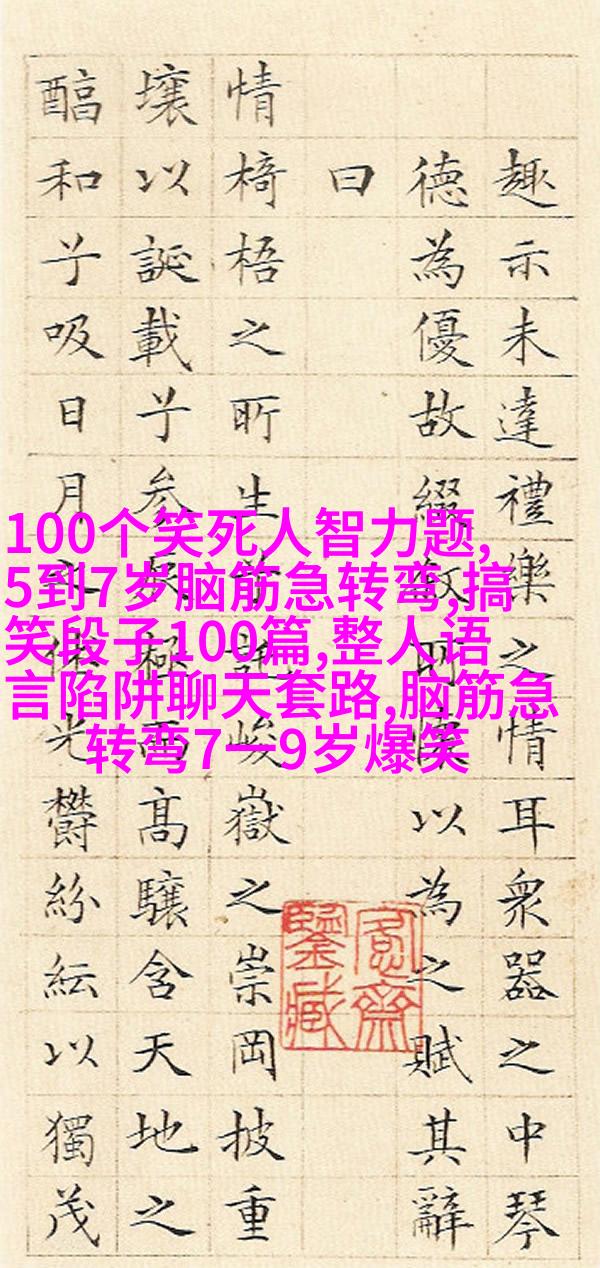 100个笑死人智力题,
5到7岁脑筋急转弯,搞
笑段子100篇,整人语
言陷阱聊天套路,脑筋急
转弯7一9岁爆笑
趣示未達禮樂之情耳衆器之中琴
德為優故綴敘所懷以為之賦其辭
曰
情椅梧之所生兮託峻嶽之崇岡披重
壤以誕載兮参辰極而高驤含天地之
醕和兮吸日月之休光鬱紛紜以獨茂